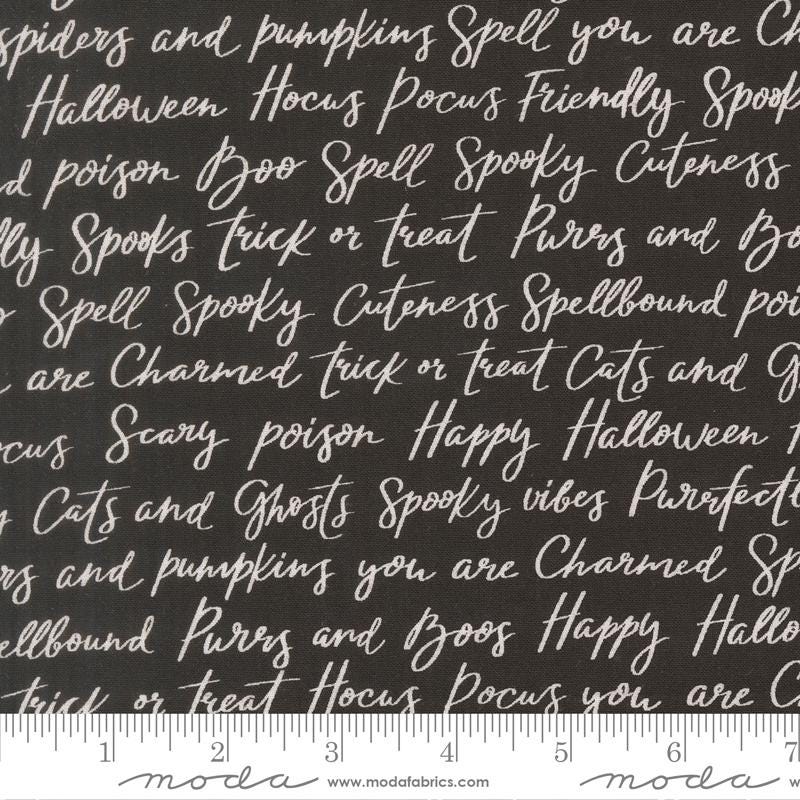 spiders and pumpkins Spell you are Ch
Halloween Hocus Pocus Friendly Spook
d poison Boo Spell Spooky Cuteness
lly Spooks trick or treat Purrs and Bo
Spell Spooky Cuteness Spellbound poi
are Charmed trick or treat Cats and G
ocus Scary poison Happy Halloween
y Cats and Ghosts Spooky vibes Purrfectl
rs and pumpkins you are Charmed Sp
ellbound Purrs and Boos Happy Hallo
trick or treat Hocus Pocus you are C
1 2 3 4 5 6 7
moda www.modafabrics.com moda w